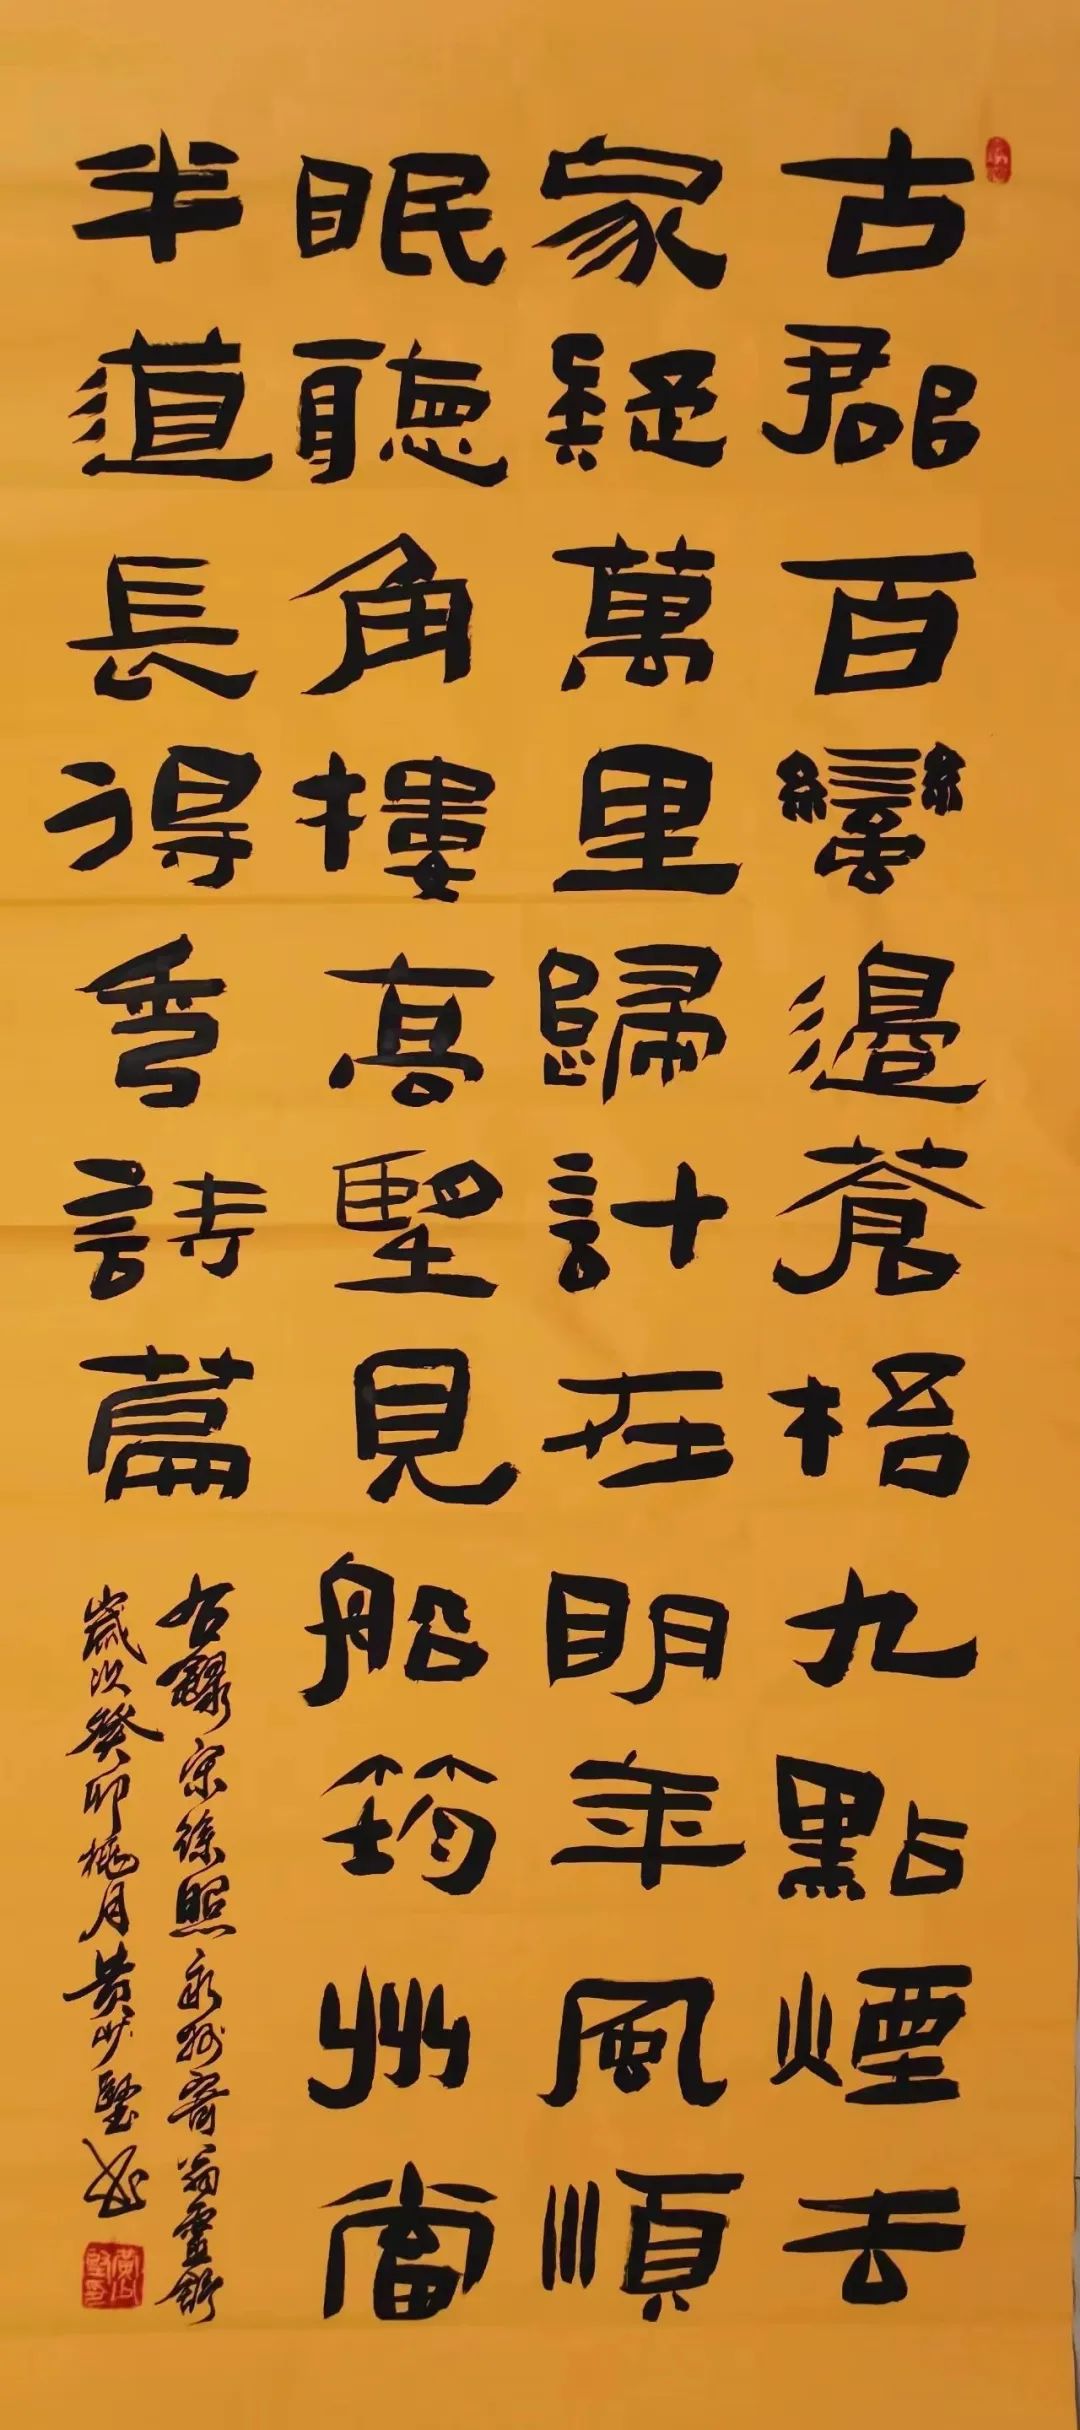 古郡百蠻邊蒼梧九點煙去
家疑萬里歸計在明年風順
眠聽角樓高朢見船筠州當
半道長得秀詩篇
右錄宋徐照永州寄翁靈舒
歲次癸卯桃月黃少堅書